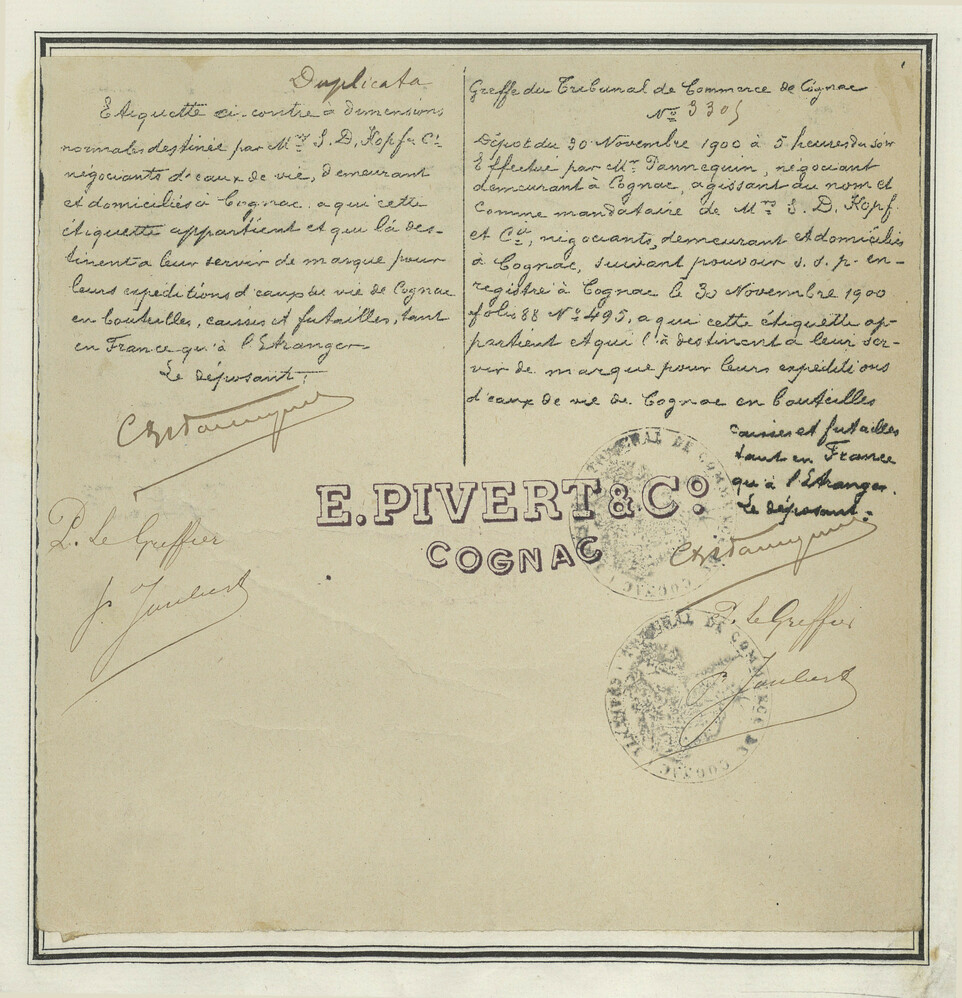 Duplicata
Etiquette ci-contre à dimensions
normales destinée par Mrs S. D. Kopf & Cie
négociants d'eaux de vie, demeurant
et domiciliés à Cognac a qui cette
étiquette appartient et qui l'à des-
tinent a leur servir de marque pour
leurs expeditions d'eaux de vie de Cognac
en bouteilles, caisses et futailles, tant
en France qu'à l'Etranger.
Le déposant:
P. Le Greffier
P. Joubert
Greffe du Tribunal de Commerce de Cognac
No 3305
Dépot du 30 Novembre 1900 à 5 heures du soir
Effectué par Mr Tannequin, négociant
demeurant à Cognac, agissant au nom et
comme mandataire de Mrs S. D. Kopf
et Cie, négociants, demeurant et domiciliés
à Cognac, suivant pouvoir s. s. p. en-
registré à Cognac le 30 Novembre 1900
folio 88 No 495, a qui cette étiquette ap-
partient et qui l'à destinent a leur ser-
vir de marque pour leurs expéditions
d'eaux de vie de Cognac en bouteilles
caisses et futailles
tant en France
qu'à l'Etranger.
Le déposant:
E. PIVERT & Co.
COGNAC
TRIBUNAL DE COMMERCE DE COGNAC
P. Le Greffier
P. Joubert
TRIBUNAL DE COMMERCE DE COGNAC